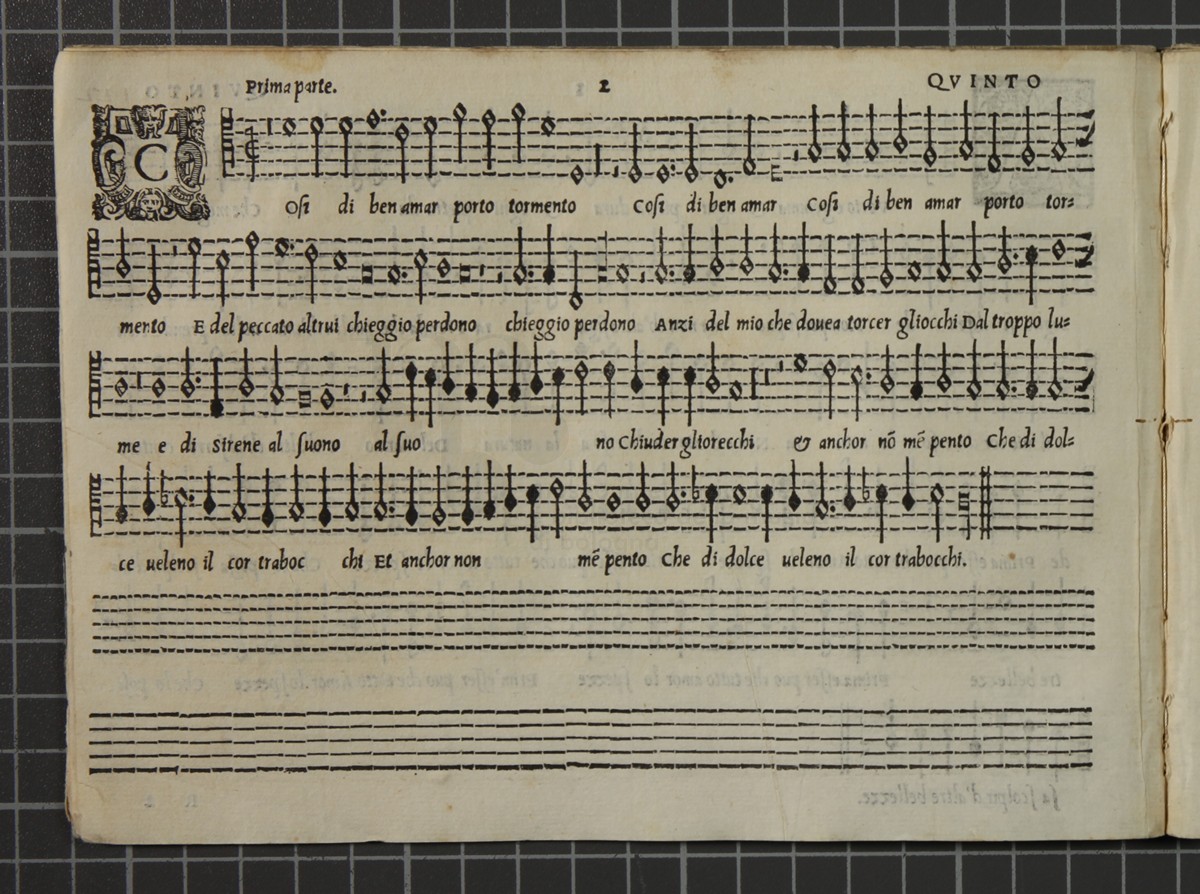 Prima parte. 2 QVINTO
C
Osi di ben amar porto tormento Cosi di ben amar Cosi di ben amar porto tor=
mento E del peccato altrui chieggio perdono chieggio perdono Anzi del mio che douea torcer gliocchi Dal troppo lu=
me e di sirene al suono al suo no Chiuder gliorecchi & anchor nõ mẽ pento Che di dol=
ce ueleno il cor traboc chi Et anchor non mẽ pento Che di dolce ueleno il cor trabocchi.